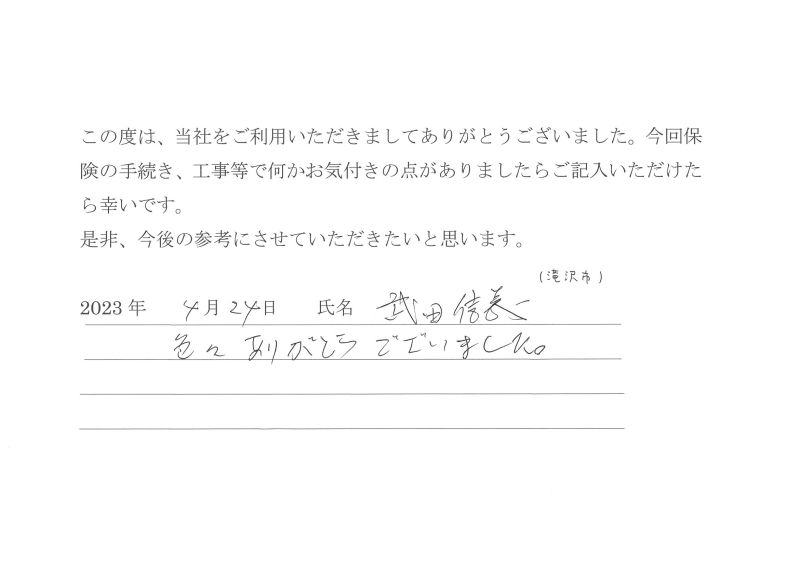 この度は、当社をご利用いただきましてありがとうございました。今回保
険の手続き、工事等で何かお気付きの点がありましたらご記入いただけた
ら幸いです。
是非、今後の参考にさせていただきたいと思います。
(滝沢市)
2023年 4月24日 氏名 武田信長
色々ありがとうございました。